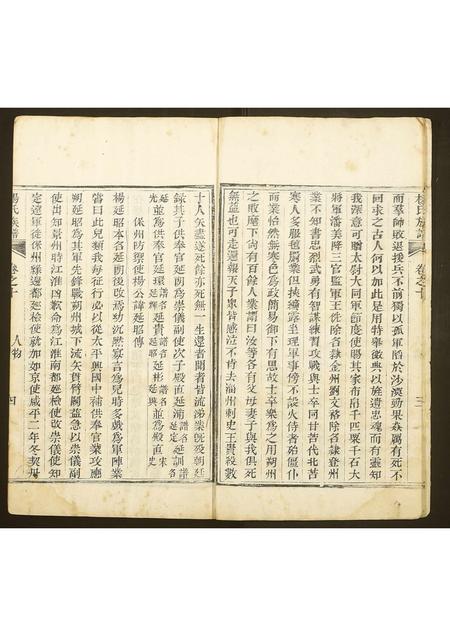 楊氏族譜 卷之
而羣師敗退援兵不前獨以孤軍陷於沙漠勁果猋厲有死不
回求之古人何以加此是用特舉徽典以旌遺忠魂而有靈知
我深意可贈太尉大同軍節度使賜其家布帛千匹粟千石大
將軍潘美降三官監軍王侁除名隸金州劉文裕除名隸登州
業不知書忠烈武勇有智謀練習攻戰與士卒同甘苦代北苦
寒人多服氈罽業但挾纊露坐理軍事傍不設火侍者殆僵仆
而業怡然無寒色爲政簡易御下有恩故士卒樂爲之用朔州
之敗麾下尚有百餘人業謂曰汝等各有父母妻子與我俱死
無益也可走還報天子眾皆感泣不肯去淄州刺史王貴殺數
十人矢盡遂死餘亦死無一生還者聞者流涕業既歿朝廷
錄其子供奉官延朗爲崇儀副使次子殿直延浦 延訓
並爲供奉官延瓌 延貴 延彬 並爲殿直
保州防禦使楊公諱延昭傳
楊延昭本名延朗後改焉幼沉默寡言爲兒時多戲爲軍陣業
嘗曰此兒類我每征行必以從太平興國中補供奉官業攻應
朔延昭爲其軍先鋒戰朔州城下流矢貫臂鬬益急以崇儀副
使出知景州時江淮凶歉命爲江淮南都巡檢使改崇儀使知
定遠軍徙保州緣邊都巡檢使就加如京使咸平二年冬契丹
楊氏族譜 卷之 人物 四